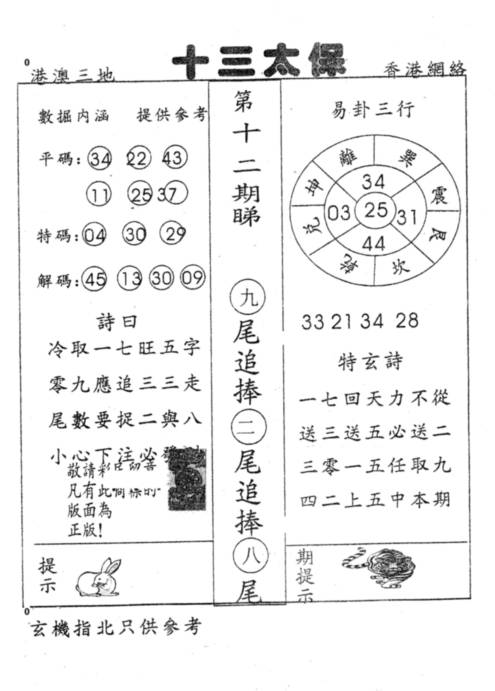 十三太保
港澳三地
香港網絡
數据内涵 提供參考
平碼: 34 22 43
11 25 37
特碼: 04 30 29
解碼: 45 13 30 09
詩曰
冷取一七旺五字
零九應追三三走
尾數要捉二與八
小心下注必
敬請彩民留意
凡有此商標的
版面為
正版!
提示
第十二期睇
九尾追捧二尾追捧八尾
易卦三行
離 巽 震 艮 坎 乾 兌 坤
34
03 25 31
44
33 21 34 28
特玄詩
一七回天力不從
送三送五必送二
三零一五任取九
四二上五中本期
期提示
玄機指北只供參考